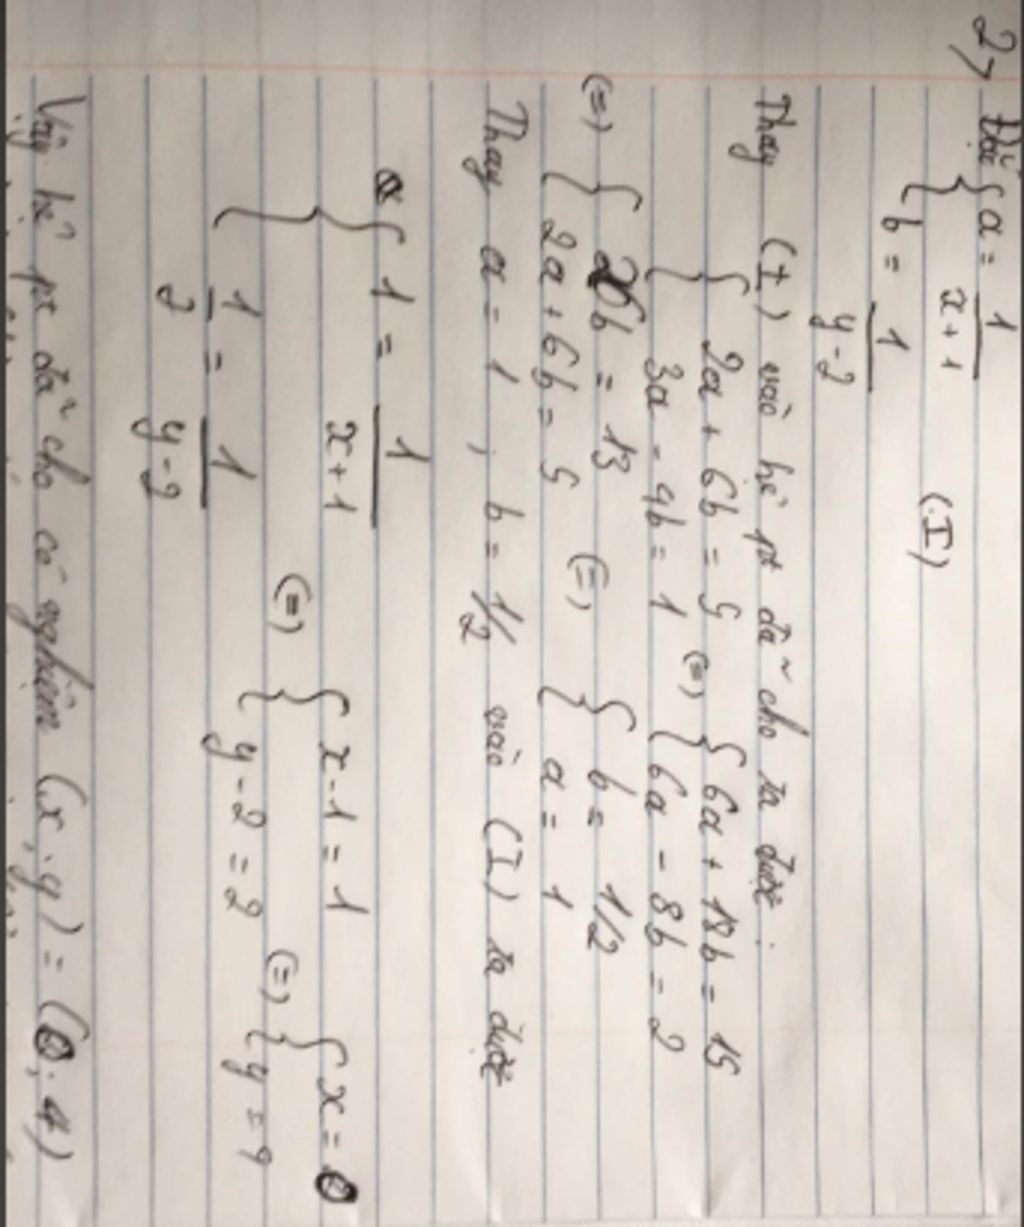 2, Đặt { a = 1/(x+1)
{ b = 1/(y-2) (I)
Thay (I) vào hệ pt đã cho ta được:
{ 2a + 6b = 5 (=) { 6a + 18b = 15
{ 3a - 4b = 1 { 6a - 8b = 2
(=) { 26b = 13 (=) { b = 1/2
{ 2a + 6b = 5 { a = 1
Thay a = 1, b = 1/2 vào (I) ta được
{ 1 = 1/(x+1) (=) { x-1 = 1 (=) { x = 0
{ 1/2 = 1/(y-2) { y-2 = 2 { y = 4
Vậy hệ pt đã cho có nghiệm (x;y) = (0;4)